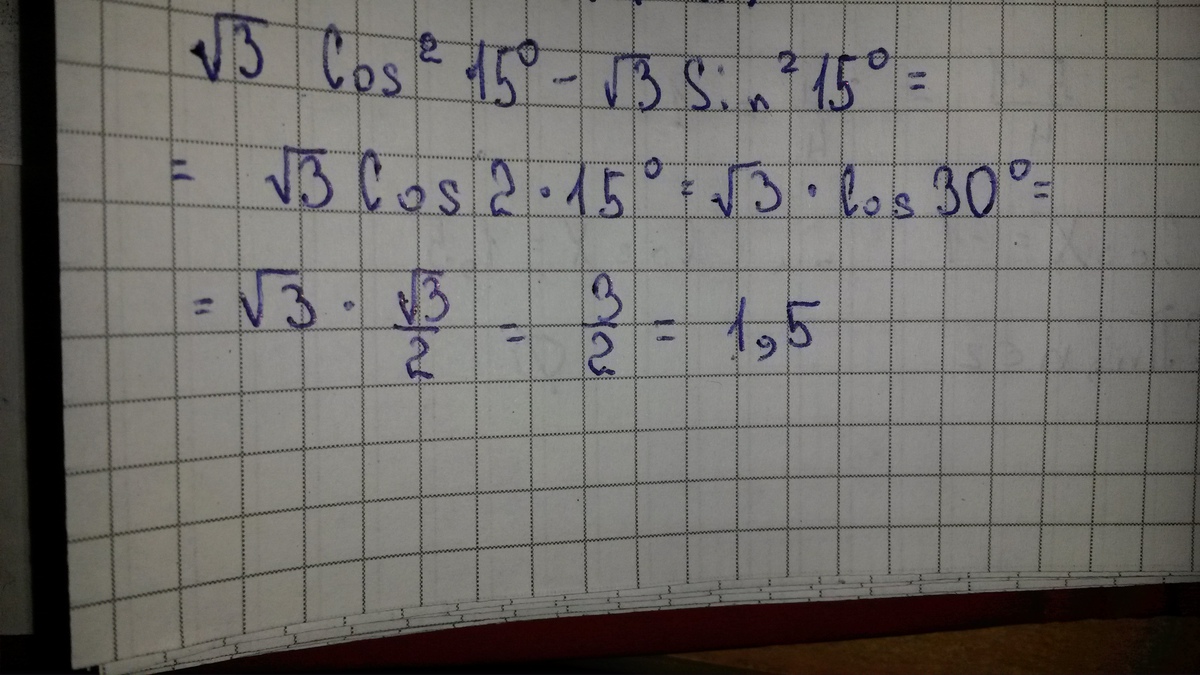 √3 Cos² 15° − √3 Sin² 15° =
= √3 Cos 2 · 15° = √3 · Cos 30° =
= √3 · √3/2 = 3/2 = 1,5